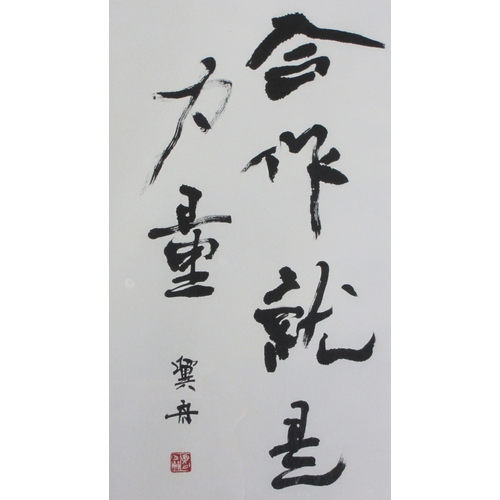 合作就是
力量
冀舟